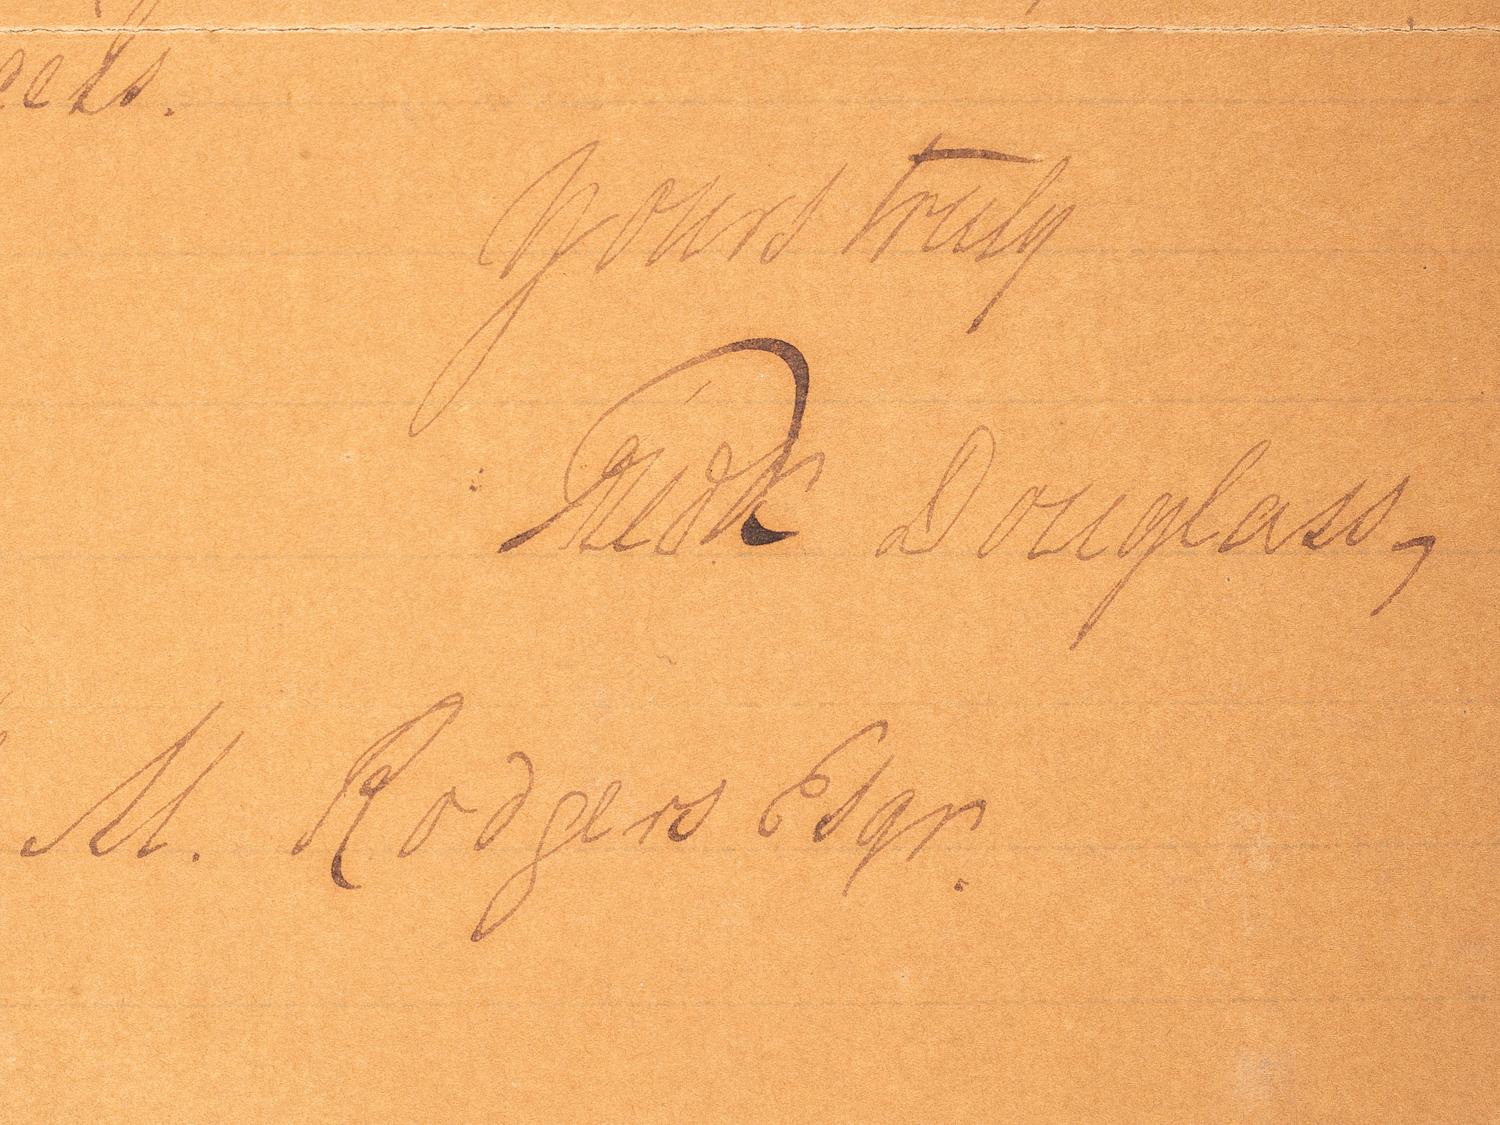 Yours truly
Fredk Douglass,
M. Rodgers Esqr.